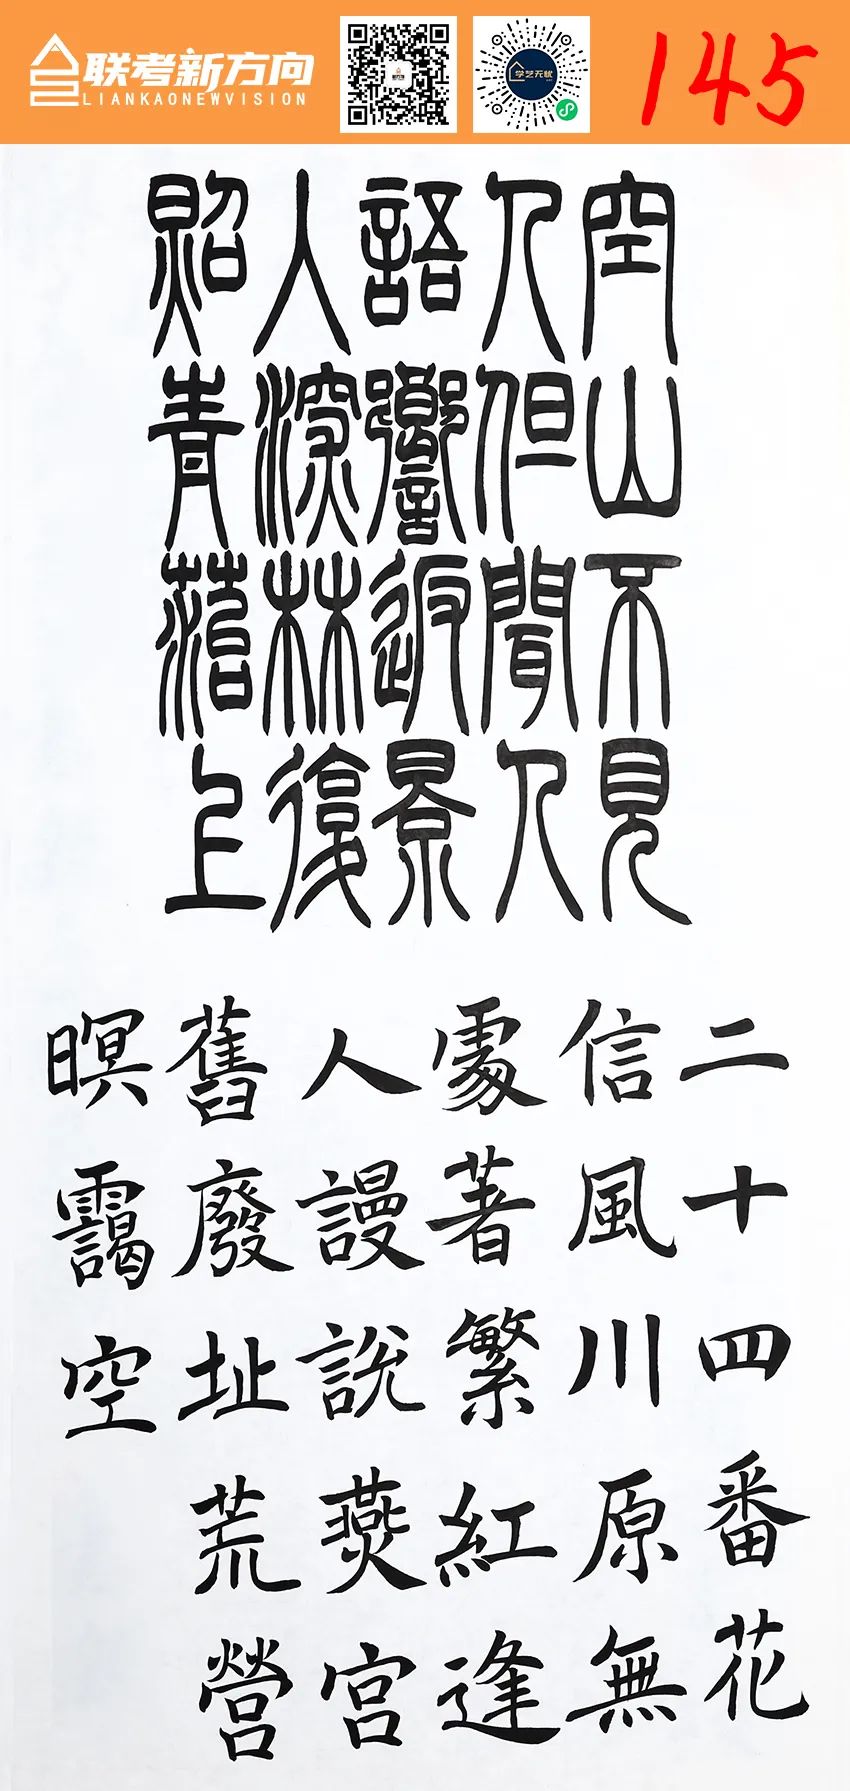 联考新方向
LIANKAONEWVISION
学艺无忧
145
空山不見
人但聞人
語響返景
入深林復
照青菭上
二十四番花
信風川原無
處著繁紅逢
人謾說燕宮
舊廢址荒營
暝靄空